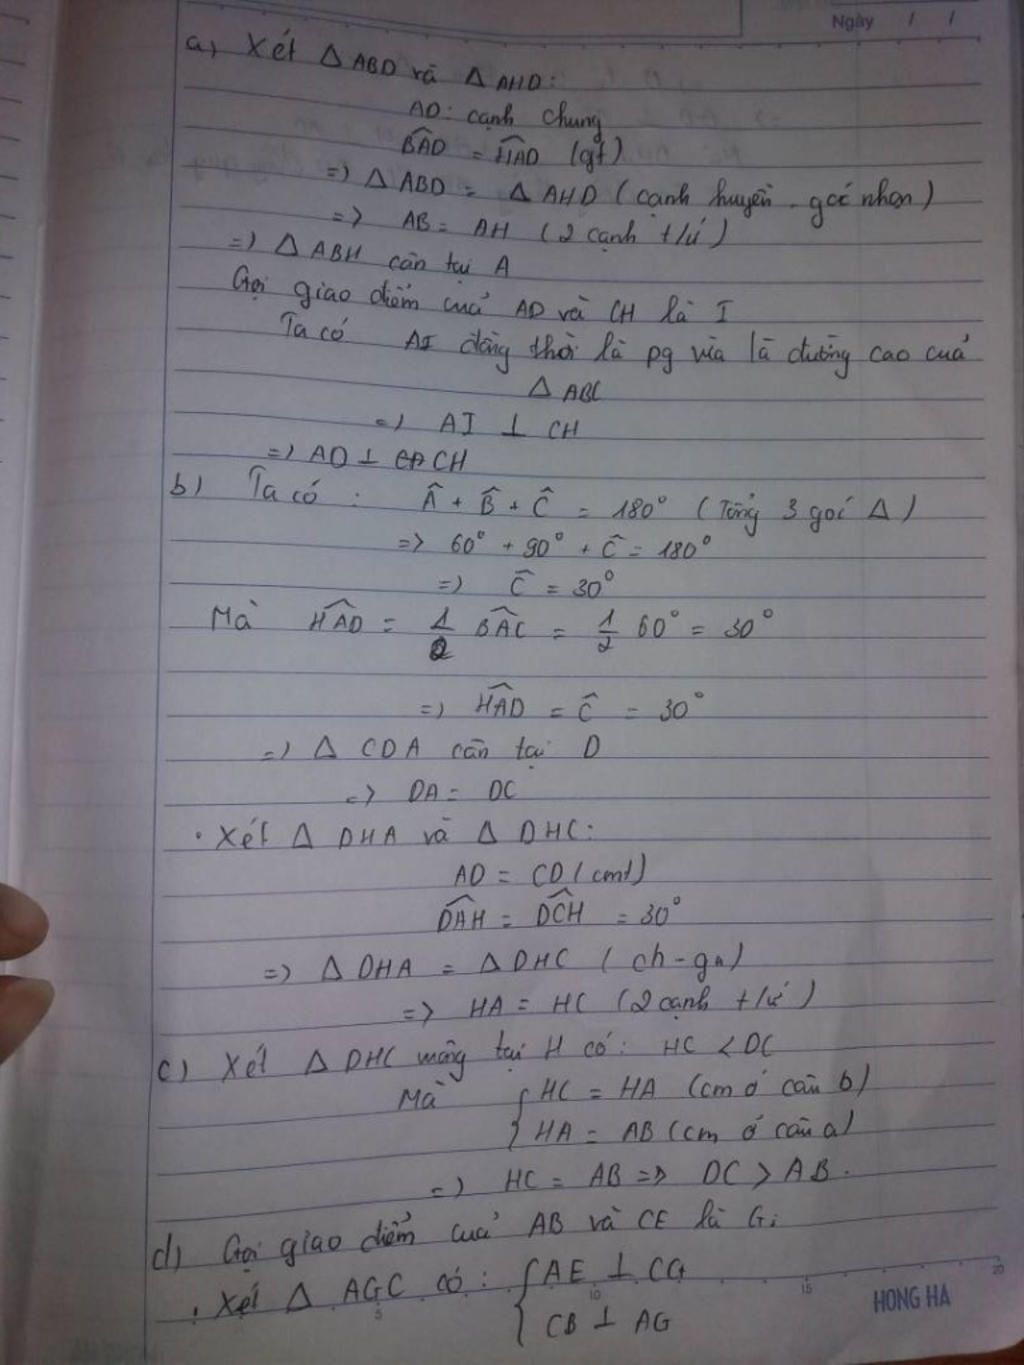 Ngày / /
a) Xét Δ ABD và Δ AHD:
AD: cạnh chung
BAD = HAD (gt)
=> Δ ABD = Δ AHD (cạnh huyền - goć nhọn)
=> AB = AH (2 cạnh t/ứ)
=> Δ ABH cân tại A
Gọi giao điểm cuả AD và CH là I
Ta có AI đồng thời là pg vừa là đường cao cuả
Δ ABC
=> AI ⊥ CH
=> AD ⊥ CH
b) Ta có : Â + B̂ + Ĉ = 180° (Tổng 3 goć Δ)
=> 60° + 90° + Ĉ = 180°
=> Ĉ = 30°
Mà HAD = 1/2 BAC = 1/2 60° = 30°
=> HAD = Ĉ = 30°
=> Δ CDA cân tại D
=> DA = DC
· Xét Δ DHA và Δ DHC:
AD = CD (cmt)
DAH = DCH = 30°
=> Δ DHA = Δ DHC (ch-gn)
=> HA = HC (2 cạnh t/ứ)
c) Xét Δ DHC vuông tại H có: HC < DC
Mà { HC = HA (cm ở câu b)
HA = AB (cm ở câu a)
=> HC = AB => DC > AB.
d) Gọi giao điểm cuả AB và CE là G;
· Xét Δ AGC có : { AE ⊥ CG
CB ⊥ AG
5 10 15 20
HONG HA